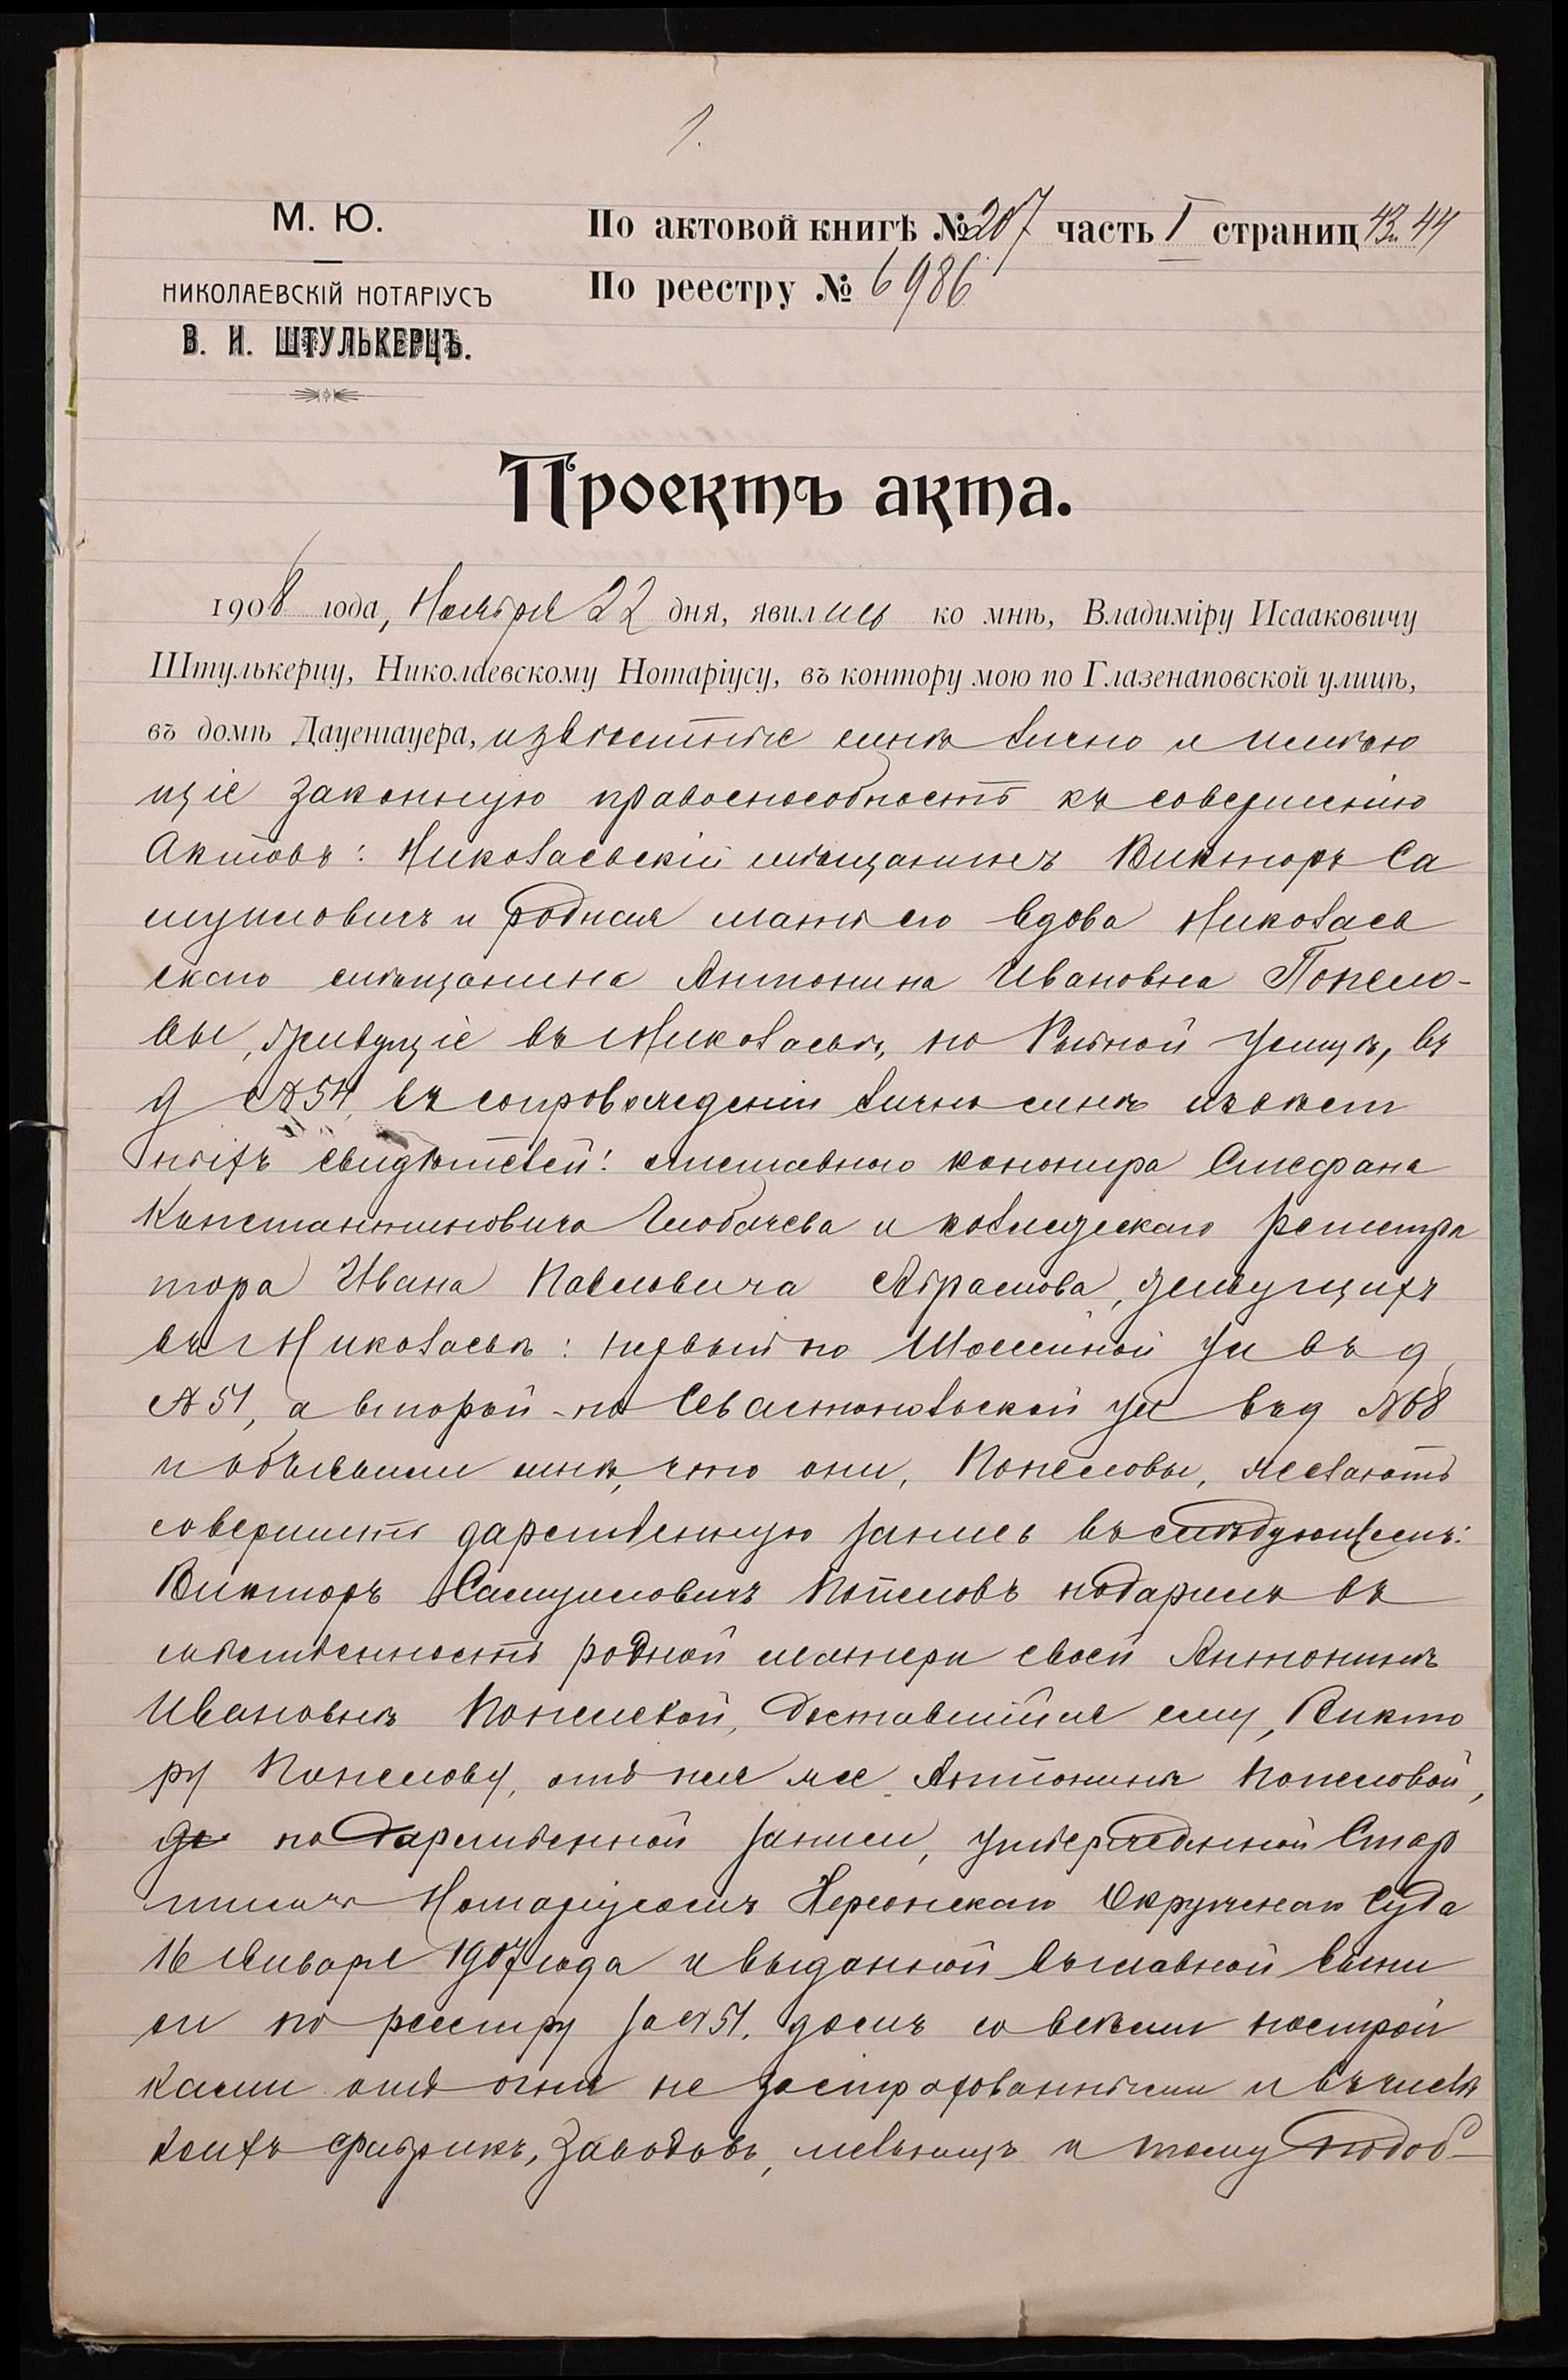 1.
М. Ю.
НИКОЛАЕВСКІЙ НОТАРІУСЪ
В. И. ШТУЛЬКЕРЦЪ.
По актовой книгѣ № 207 часть I страниц 43 и 44
По реестру № 6986
Проектъ акта.
1908 года, Ноября 22 дня, явились ко мнѣ, Владиміру Исааковичу
Штулькерцу, Николаевскому Нотаріусу, въ контору мою по Глазенаповской улицѣ,
въ домѣ Дауенгауера, извѣстные мнѣ лично и имѣю
щіе законную правоспособность къ совершенію
Актовъ: Николаевскій мѣщанинъ Викторъ Са
муиловичъ и родная мать его вдова Николаев
скаго мѣщанина Антонина Ивановна Попело-
вы, живущіе въ Николаевѣ, по Рыбной улицѣ, въ
д № 54, въ сопровожденіи лично мнѣ извѣст
ныхъ свидѣтелей: отставного канонира Стефана
Константиновича Глобачева и коллежскаго регистра
тора Ивана Павловича Абрамова, живущихъ
въ Николаевѣ: первый по Шоссейной ул въ д
№ 51, а второй - по Севастопольской ул въ д № 68
и объявили мнѣ, что они, Попеловы, желаютъ
совершить дарственную запись въ слѣдующемъ:
Викторъ Самуиловичъ Попеловъ подарилъ въ
собственность родной матери своей Антонинѣ
Ивановнѣ Попеловой, доставшійся ему, Викто
ру Попелову, отъ нея же Антонины Попеловой,
по дарственной записи, утвержденной Стар
шимъ Нотаріусомъ Херсонскаго Окружнаго Суда
16 Января 1907 года и выданной въ главной выпи
си по реестру за № 51, домъ со всѣми построй
ками отъ огня не застрахованными и въ числѣ
коихъ фабрикъ, заводовъ, мельницъ и тому подоб-